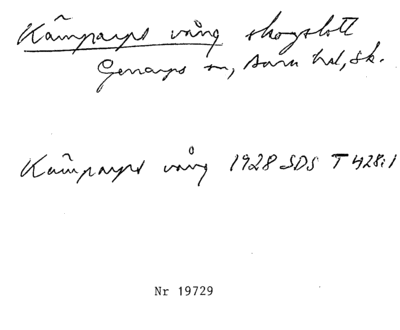 Kämparps vång skogslott
Genarps sn, Bara hd, Sk.
Kämparps vång 1928 SDS T 428:1
Nr 19729